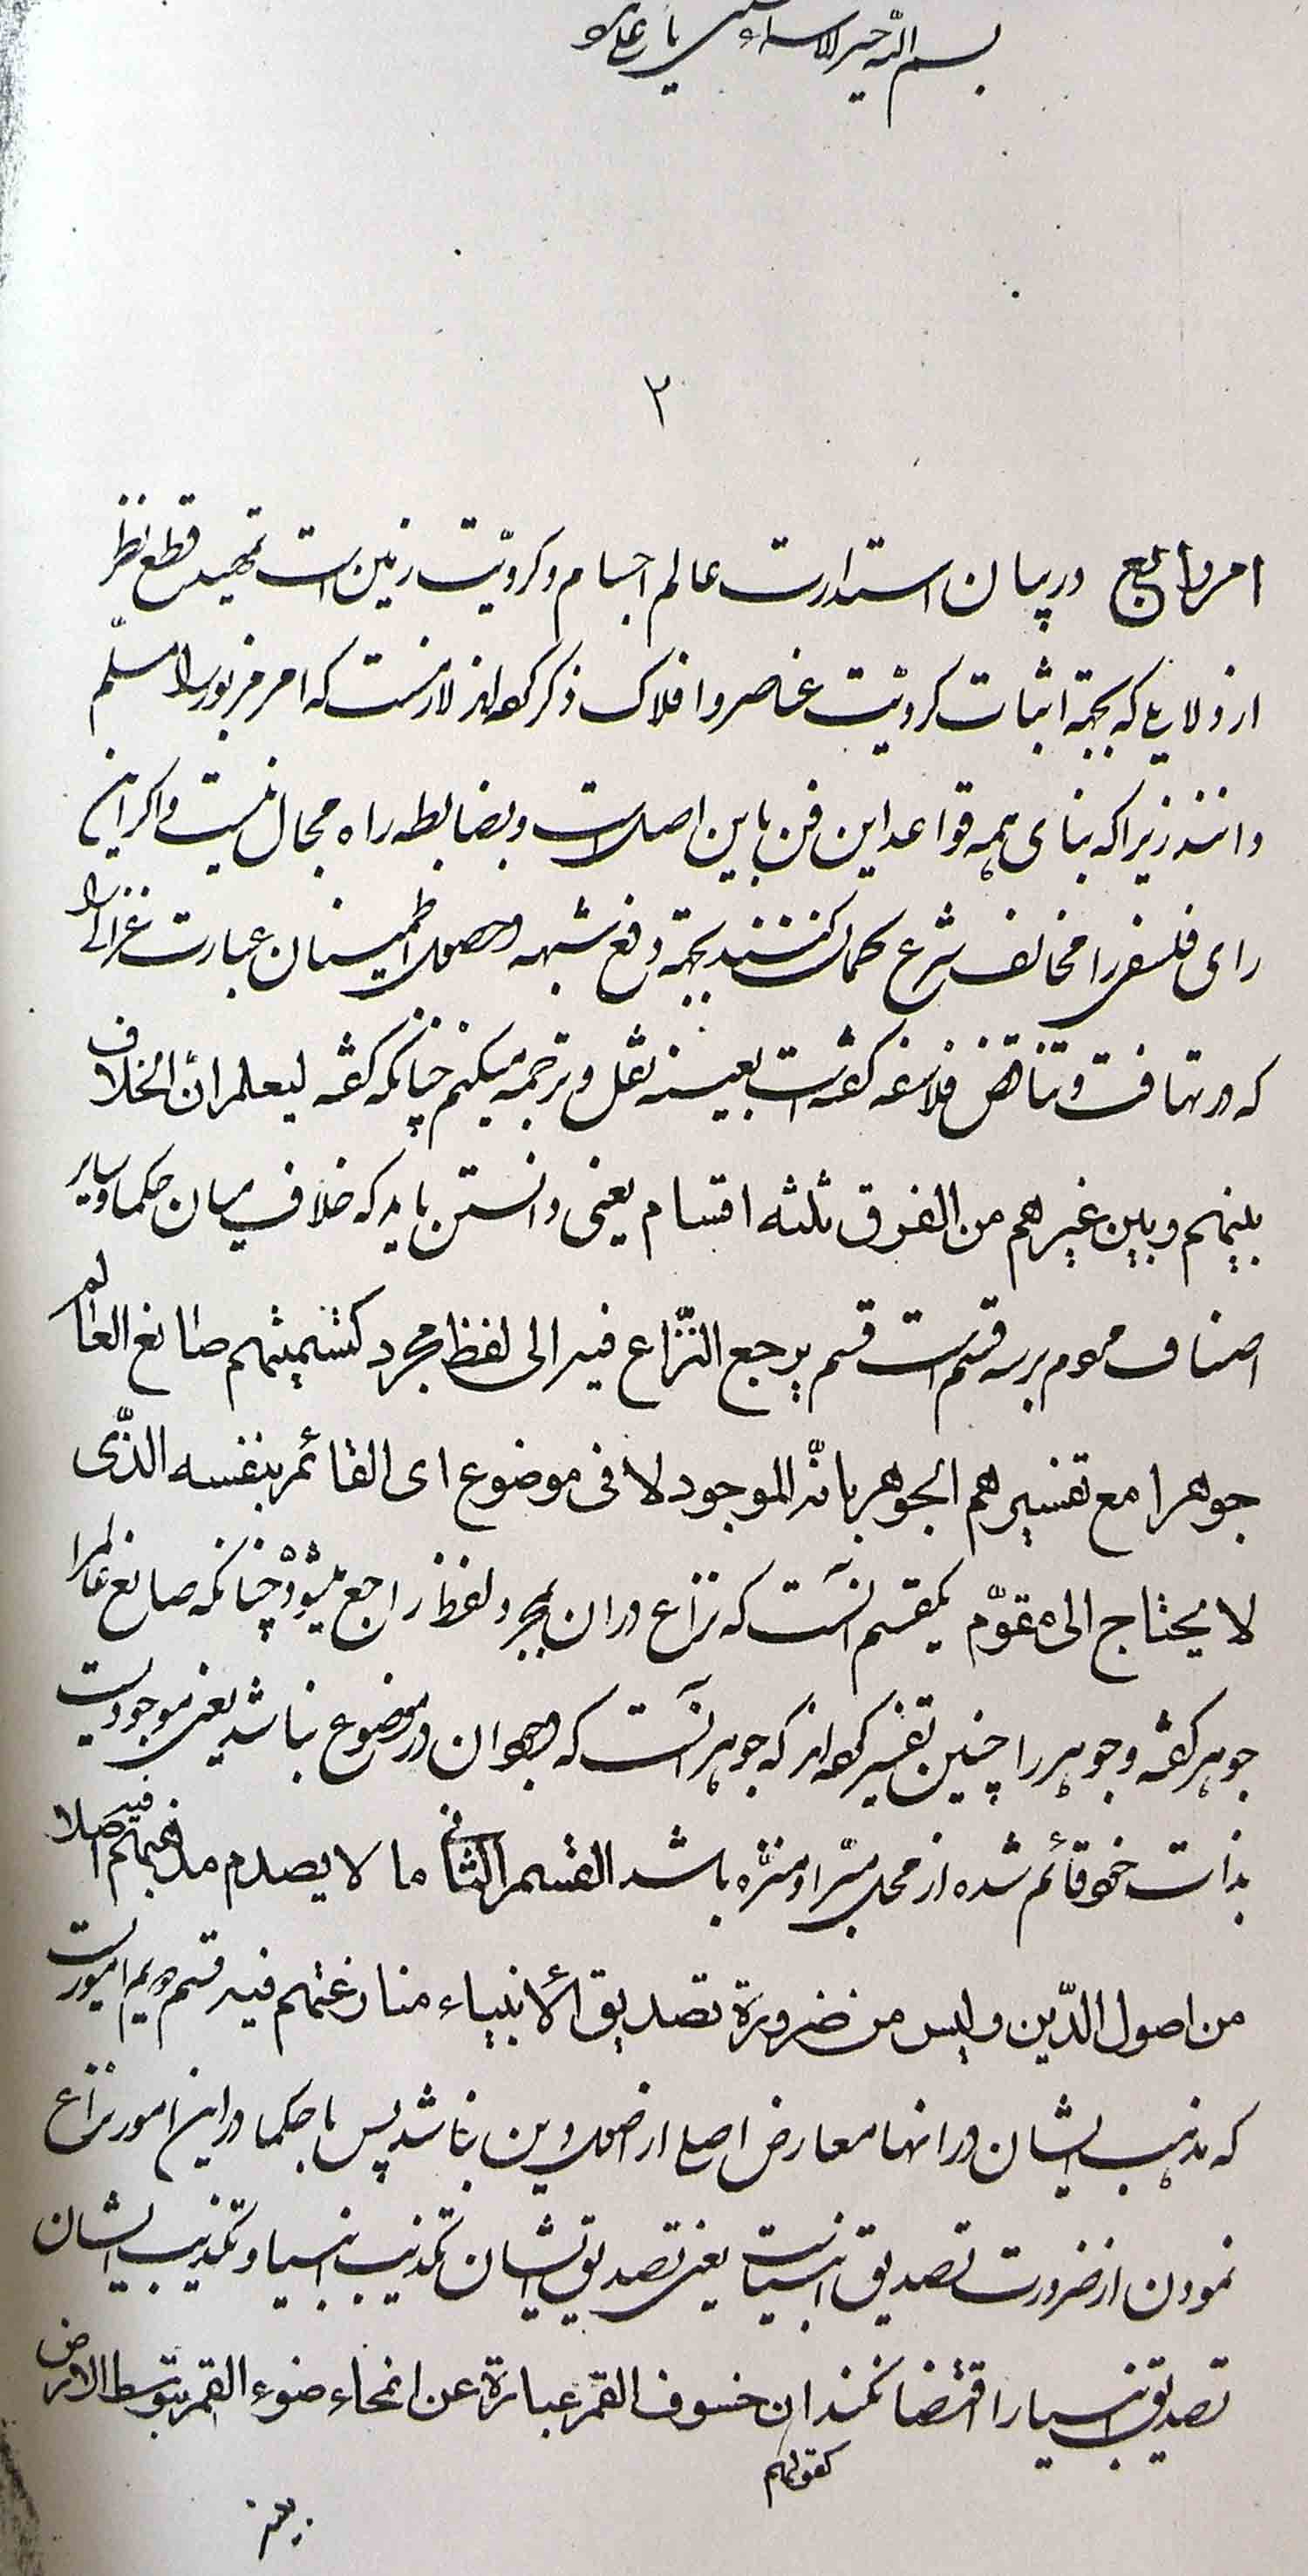 بسم الله خير الاسماء
٢
امر رابع در بیان استدارت عالم اجسام و کرویّت زمین است تمهید قطع نظر
از دلایلی که بجهة اثبات کرویّت عناصر و افلاک ذکر کرده‌اند لازمست که امر مزبور را مسلّم
دانند زیرا که بنای همه قواعد این فن باین اصل است و بضابطه راه مجال نیست و اکر این
رای فلسفی را مخالف شرع کمان کنند بجهة دفع شبهه و حصول اطمینان عبارت غزالی را
که در تهافت و تناقض فلاسفه کفته است بعینه نقل و ترجمه میکنم چنانکه کفته لیعلم انّ الخلاف
بینهم و بین غیرهم من الفرق ثلثه اقسام یعنی دانستن باید که خلاف میان حکما و سایر
اصناف مردم بر سه قسم است قسم یرجع النّزاع فیه الی لفظ مجرد کتسمیتهم صانع العالم
جوهرا مع تفسیرهم الجوهر بانّه الموجود لا فی موضوع ای القائم بنفسه الذّی
لا یحتاج الی مقوّم یکقسم آنست که نزاع در ان بمجرد لفظ راجع میشود چنانکه صانع عالم را
جوهر کفته و جوهر را چنین تفسیر کرده‌اند که جوهر آنست که وجود ان در موضوع نباشد یعنی موجودیست
بذات خود قائم شده از محل مبرّا و منزّه باشد القسم الثانی ما لا یصدم مذهبهم فیه اصلا
من اصول الدّین و لیس من ضرورة تصدیق الأنبیاء منازعتهم فیه قسم دویم اموریست
که مذهب ایشان در انها معارض اصلی از اصول دین نباشد پس با حکما در این امور نزاع
نمودن از ضرورت تصدیق انبیا نیست یعنی تصدیق ایشان تکذیب انبیا و تکذیب ایشان
تصدیق انبیا را اقتضا نکند کقولهم ان خسوف القمر عبارة عن انمحاء ضوء القمر بتوسط الارض